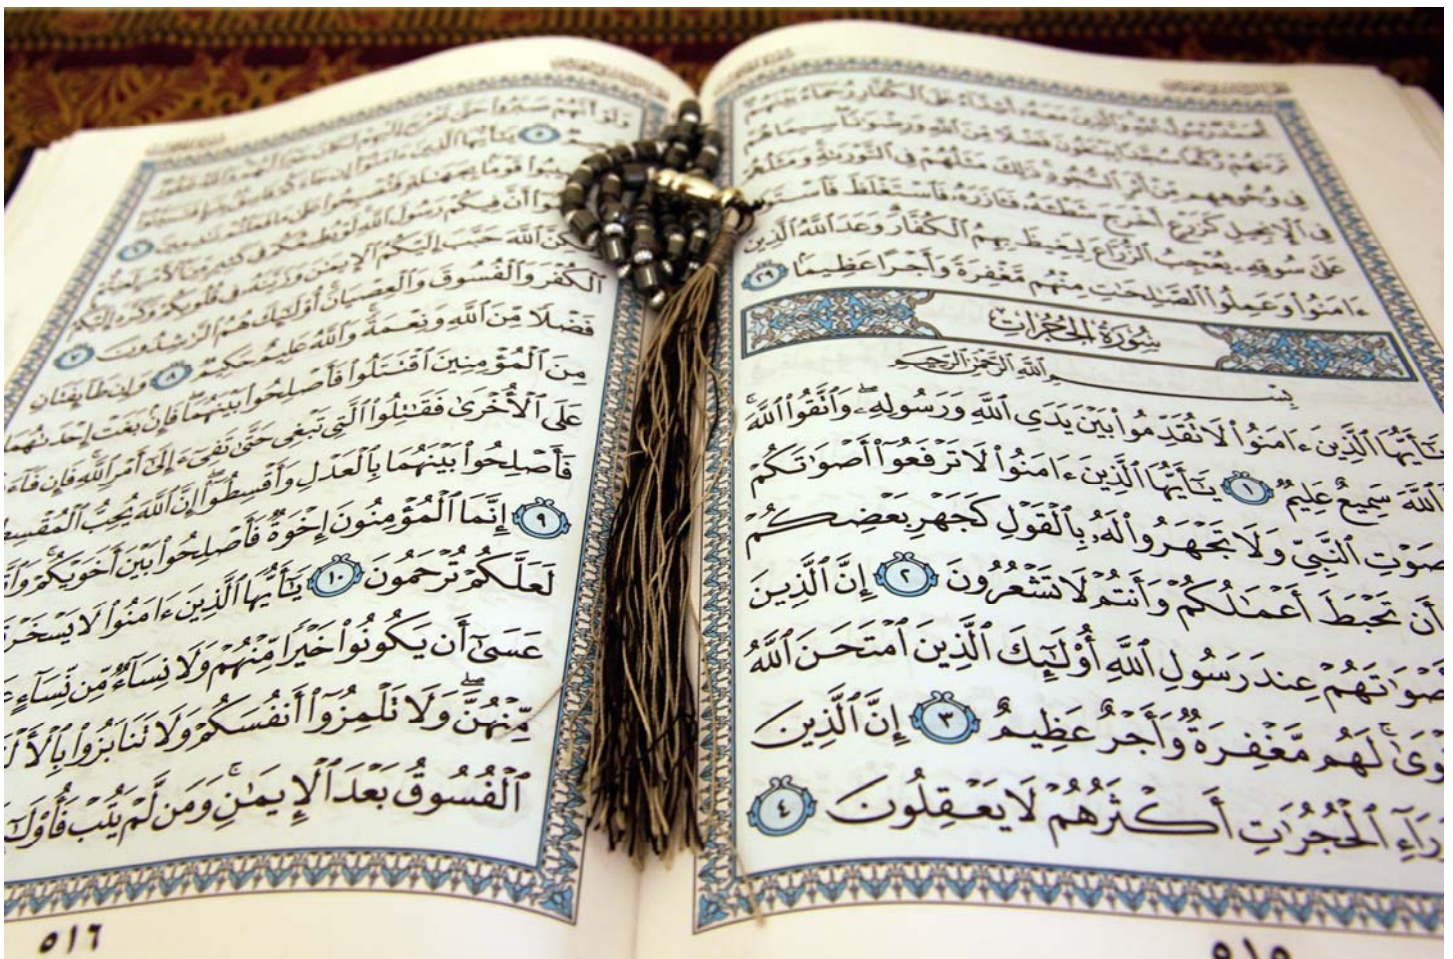 مُّحَمَّدٌ رَّسُولُ ٱللَّهِ وَٱلَّذِينَ مَعَهُۥٓ أَشِدَّآءُ عَلَى ٱلۡكُفَّارِ رُحَمَآءُ بَيۡنَهُمۡ
تَرَىٰهُمۡ رُكَّعٗا سُجَّدٗا يَبۡتَغُونَ فَضۡلٗا مِّنَ ٱللَّهِ وَرِضۡوَٰنٗا سِيمَاهُمۡ
فِي وُجُوهِهِم مِّنۡ أَثَرِ ٱلسُّجُودِ ذَٰلِكَ مَثَلُهُمۡ فِي ٱلتَّوۡرَىٰةِ وَمَثَلُهُمۡ
فِي ٱلۡإِنجِيلِ كَزَرۡعٍ أَخۡرَجَ شَطۡـَٔهُۥ فَـَٔازَرَهُۥ فَٱسۡتَغۡلَظَ فَٱسۡتَوَىٰ
عَلَىٰ سُوقِهِۦ يُعۡجِبُ ٱلزُّرَّاعَ لِيَغِيظَ بِهِمُ ٱلۡكُفَّارَۗ وَعَدَ ٱللَّهُ ٱلَّذِينَ
ءَامَنُواْ وَعَمِلُواْ ٱلصَّٰلِحَٰتِ مِنۡهُم مَّغۡفِرَةٗ وَأَجۡرًا عَظِيمَۢا ٢٩
سُورَةُ الحُجُرَاتِ
بِسۡمِ ٱللَّهِ ٱلرَّحۡمَٰنِ ٱلرَّحِيمِ
يَٰٓأَيُّهَا ٱلَّذِينَ ءَامَنُواْ لَا تُقَدِّمُواْ بَيۡنَ يَدَيِ ٱللَّهِ وَرَسُولِهِۦۖ وَٱتَّقُواْ ٱللَّهَۚ
ٱللَّهَ سَمِيعٌ عَلِيمٞ ١ يَٰٓأَيُّهَا ٱلَّذِينَ ءَامَنُواْ لَا تَرۡفَعُوٓاْ أَصۡوَٰتَكُمۡ
صَوۡتِ ٱلنَّبِيِّ وَلَا تَجۡهَرُواْ لَهُۥ بِٱلۡقَوۡلِ كَجَهۡرِ بَعۡضِكُمۡ
أَن تَحۡبَطَ أَعۡمَٰلُكُمۡ وَأَنتُمۡ لَا تَشۡعُرُونَ ٢ إِنَّ ٱلَّذِينَ
أَصۡوَٰتَهُمۡ عِندَ رَسُولِ ٱللَّهِ أُوْلَٰٓئِكَ ٱلَّذِينَ ٱمۡتَحَنَ ٱللَّهُ
لَهُم مَّغۡفِرَةٞ وَأَجۡرٌ عَظِيمٌ ٣ إِنَّ ٱلَّذِينَ
وَرَآءِ ٱلۡحُجُرَٰتِ أَكۡثَرُهُمۡ لَا يَعۡقِلُونَ ٤
٥١٥
وَلَوۡ أَنَّهُمۡ صَبَرُواْ حَتَّىٰ تَخۡرُجَ إِلَيۡهِمۡ لَكَانَ خَيۡرٗا لَّهُمۡۚ وَٱللَّهُ غَفُورٞ
٥ يَٰٓأَيُّهَا ٱلَّذِينَ ءَامَنُوٓاْ إِن جَآءَكُمۡ فَاسِقُۢ بِنَبَإٖ فَتَبَيَّنُوٓاْ
قَوۡمَۢا بِجَهَٰلَةٖ فَتُصۡبِحُواْ عَلَىٰ مَا فَعَلۡتُمۡ نَٰدِمِينَ ٦
أَنَّ فِيكُمۡ رَسُولَ ٱللَّهِۚ لَوۡ يُطِيعُكُمۡ فِي كَثِيرٖ مِّنَ ٱلۡأَمۡرِ لَعَنِتُّمۡ
ٱللَّهَ حَبَّبَ إِلَيۡكُمُ ٱلۡإِيمَٰنَ وَزَيَّنَهُۥ فِي قُلُوبِكُمۡ وَكَرَّهَ إِلَيۡكُمُ
ٱلۡكُفۡرَ وَٱلۡفُسُوقَ وَٱلۡعِصۡيَانَۚ أُوْلَٰٓئِكَ هُمُ ٱلرَّٰشِدُونَ ٧
فَضۡلٗا مِّنَ ٱللَّهِ وَنِعۡمَةٗۚ وَٱللَّهُ عَلِيمٌ حَكِيمٞ ٨ وَإِن طَآئِفَتَانِ
مِنَ ٱلۡمُؤۡمِنِينَ ٱقۡتَتَلُواْ فَأَصۡلِحُواْ بَيۡنَهُمَاۖ فَإِنۢ بَغَتۡ إِحۡدَىٰهُمَا
عَلَى ٱلۡأُخۡرَىٰ فَقَٰتِلُواْ ٱلَّتِي تَبۡغِي حَتَّىٰ تَفِيٓءَ إِلَىٰٓ أَمۡرِ ٱللَّهِۚ فَإِن فَآءَتۡ
فَأَصۡلِحُواْ بَيۡنَهُمَا بِٱلۡعَدۡلِ وَأَقۡسِطُوٓاْۖ إِنَّ ٱللَّهَ يُحِبُّ ٱلۡمُقۡسِطِ
٩ إِنَّمَا ٱلۡمُؤۡمِنُونَ إِخۡوَةٞ فَأَصۡلِحُواْ بَيۡنَ أَخَوَيۡكُمۡۚ
لَعَلَّكُمۡ تُرۡحَمُونَ ١٠ يَٰٓأَيُّهَا ٱلَّذِينَ ءَامَنُواْ لَا يَسۡخَرۡ
عَسَىٰٓ أَن يَكُونُواْ خَيۡرٗا مِّنۡهُمۡ وَلَا نِسَآءٞ مِّن نِّسَآءٍ
مِّنۡهُنَّۖ وَلَا تَلۡمِزُوٓاْ أَنفُسَكُمۡ وَلَا تَنَابَزُواْ
ٱلۡفُسُوقُ بَعۡدَ ٱلۡإِيمَٰنِۚ وَمَن لَّمۡ يَتُبۡ
٥١٦